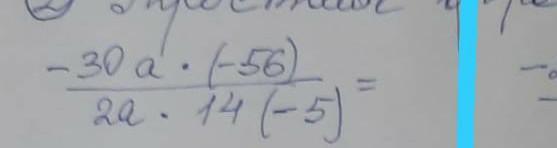 -30a · (-56)
2a · 14 (-5) =